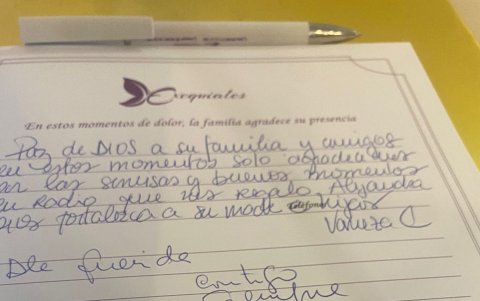 Exequiales
En estos momentos de dolor, la familia agradece su presencia
Paz de DIOS a su familia y amigos
en estos momentos solo agradecerles
por las sonrisas y buenos momentos
en Radio que nos regaló Alejandra
Dios fortalezca a su madre e hijos
Teléfono
Vanesa C
Ale querida
contigo
siempre